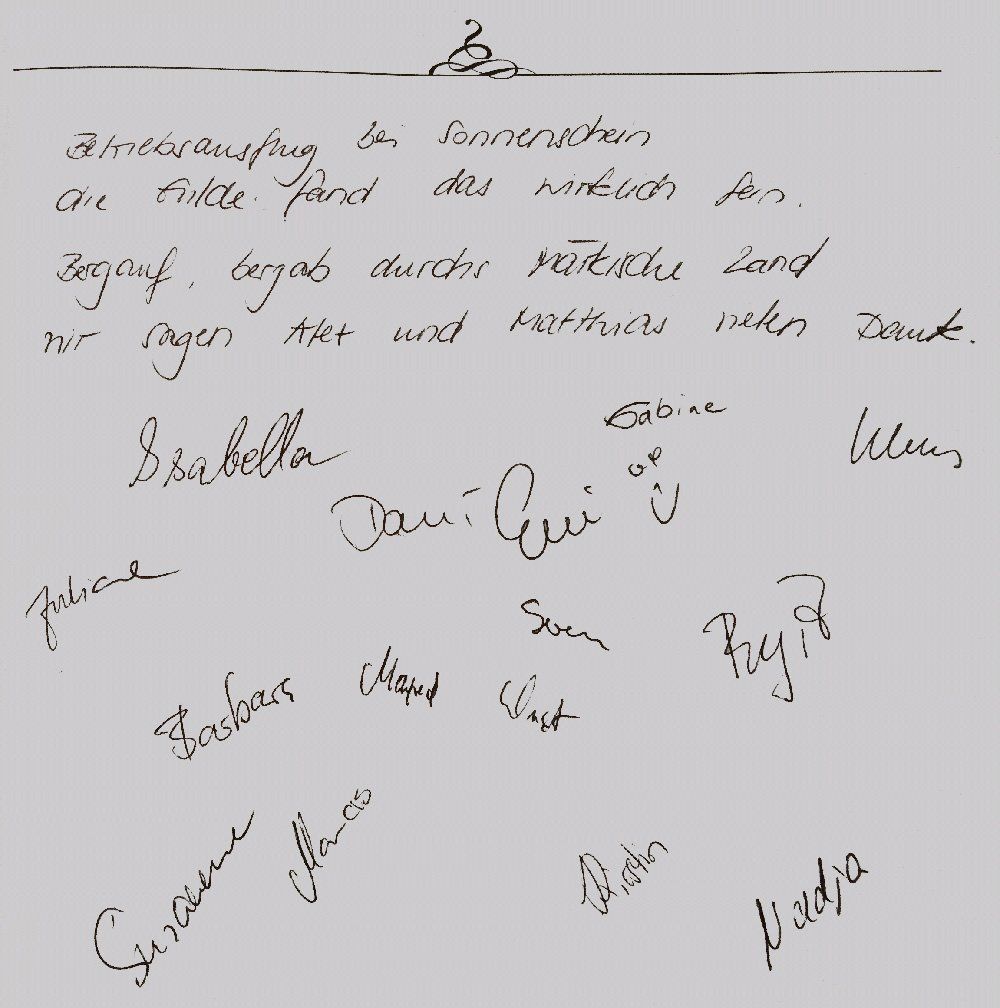 Betriebsausflug bei Sonnenschein
die Gilde fand das wirklich fein.
Bergauf, bergab durchs Märkische Land
wir sagen Alet und Matthias vielen Dank.
Isabella
Sabine
Klaus
Dani
Juliane
Sven
Birgit
Barbara
Manfred
Susanne
Marcus
Kirstin
Nadja